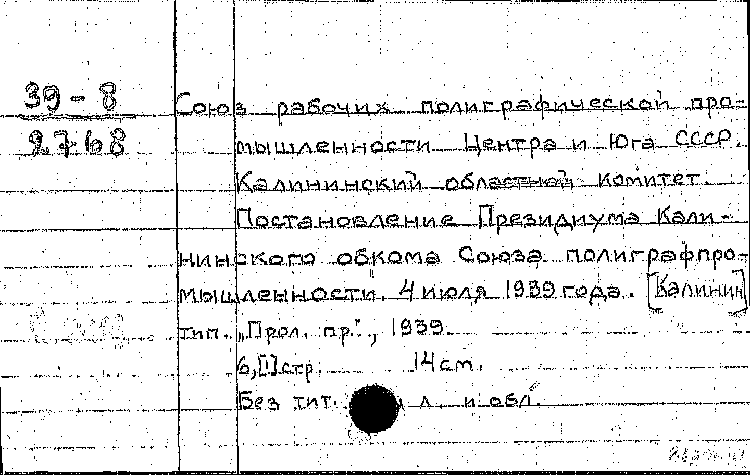 39-8
2768
Союз рабочих полиграфической про-
мышленности Центра и Юга СССР.
Калининский областной комитет.
Постановление Президиума Кали-
нинского обкома Союза полиграфпро-
мышленности. 4 июля 1939 года. [Калинин]
тип. "Прол. пр.", 1939.
6,[1] стр. 14 см.
Без тит. л. и обл.